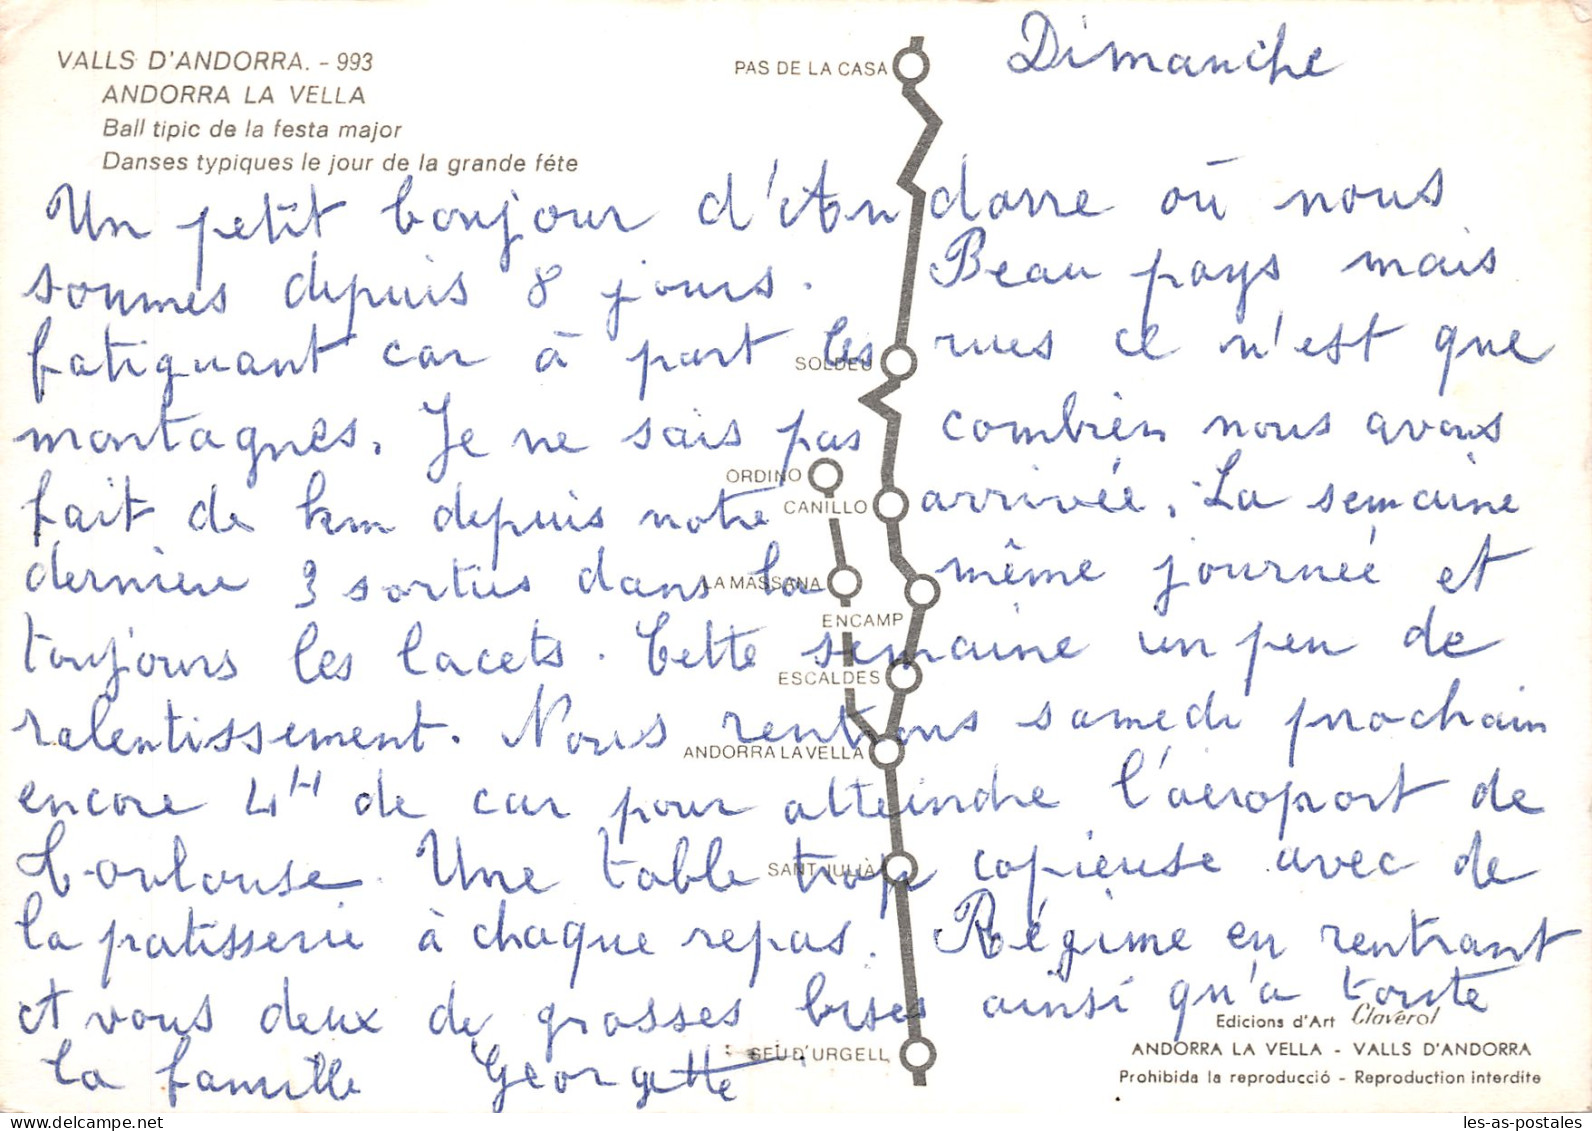 VALLS D'ANDORRA. - 993
ANDORRA LA VELLA
Ball tipic de la festa major
Danses typiques le jour de la grande féte
Dimanche
Un petit bonjour d'Andorre où nous
sommes depuis 8 jours. Beau pays mais
fatiguant car à part les rues ce n'est que
montagnes. Je ne sais pas combien nous avons
fait de km depuis notre arrivée. La semaine
dernière 3 sorties dans la même journée et
toujours les lacets. Cette semaine un peu de
ralentissement. Nous rentrons samedi prochain
encore 4H de car pour atteindre l'aéroport de
Toulouse. Une table trop copieuse avec de
la patisserie à chaque repas. Régime en rentrant
A vous deux de grosses bises ainsi qu'à toute
la famille Georgette
PAS DE LA CASA
SOLDEU
ORDINO
CANILLO
LA MASSANA
ENCAMP
ESCALDES
ANDORRA LA VELLA
SANT JULIÀ
SEU D'URGELL
Edicions d'Art Claverol
ANDORRA LA VELLA - VALLS D'ANDORRA
Prohibida la reproducció - Reproduction interdite
les-as-postales